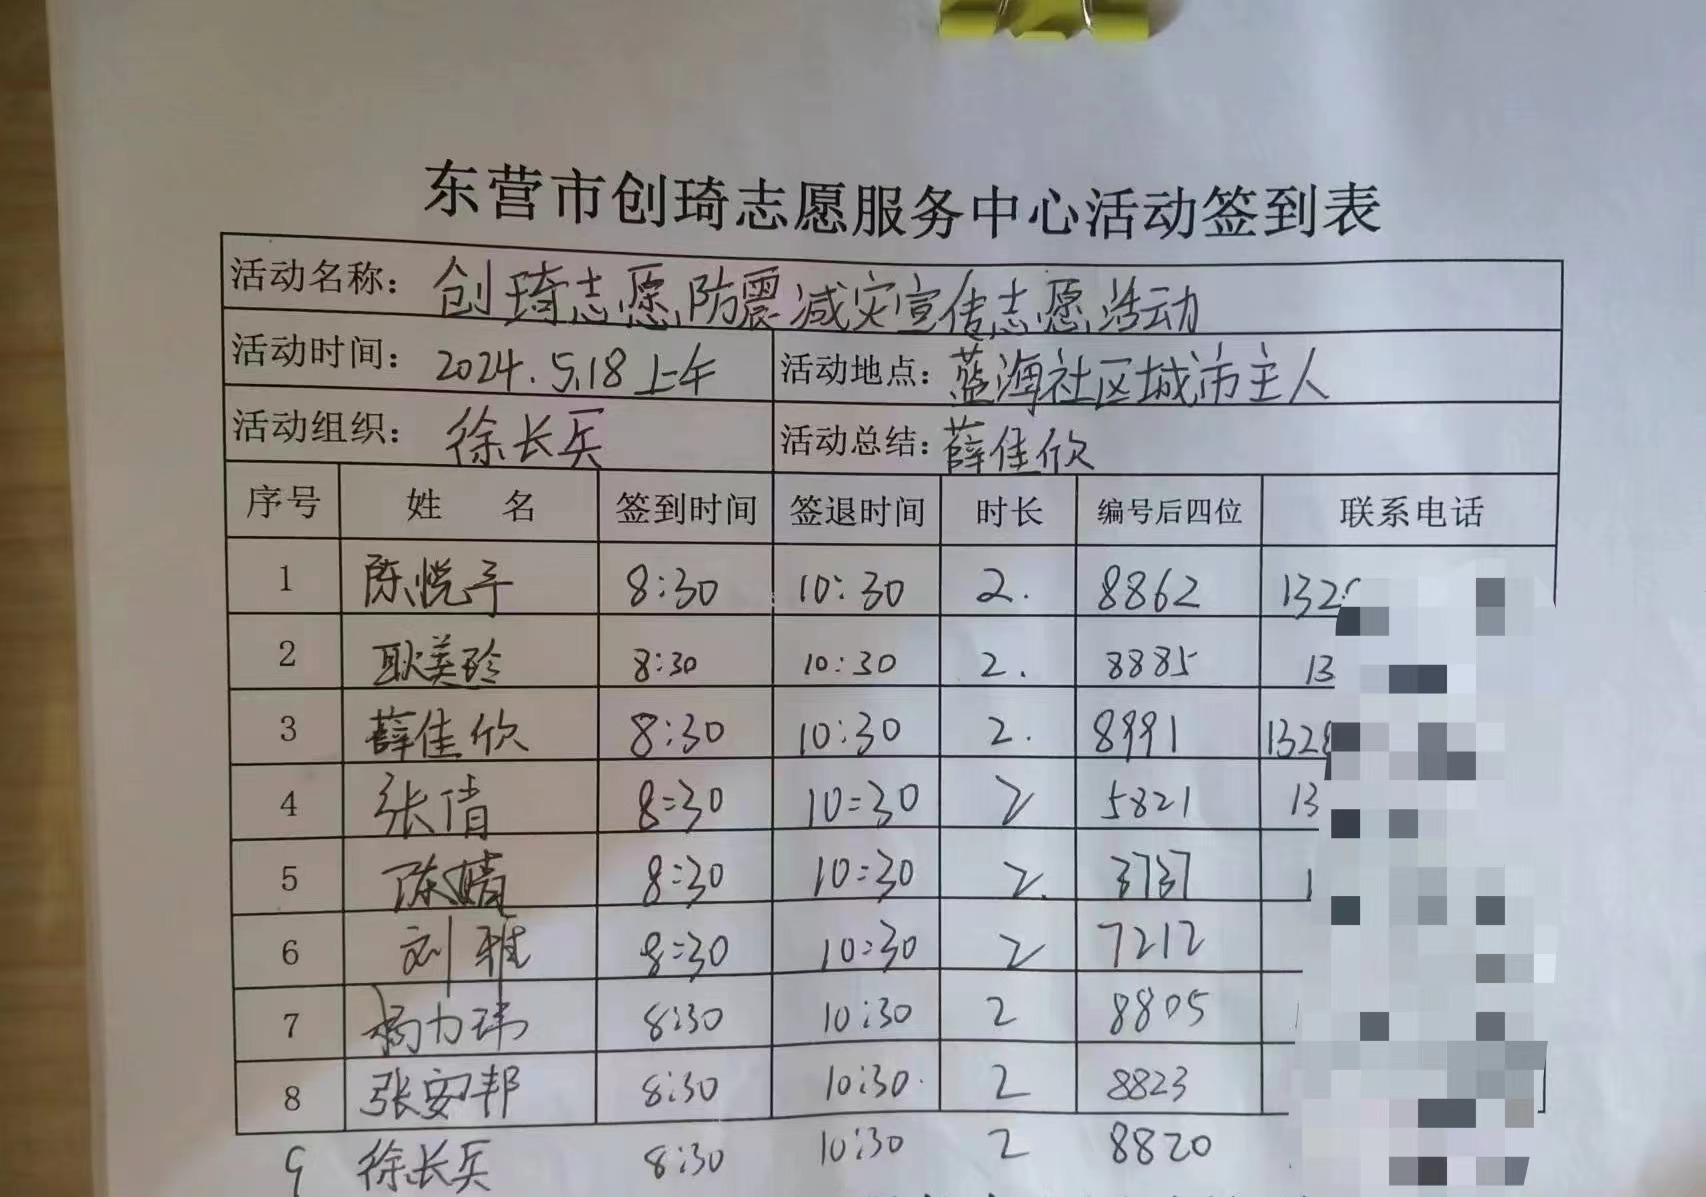 东营市创琦志愿服务中心活动签到表
活动名称: 创琦志愿防震减灾宣传志愿活动
活动时间: 2024.5.18上午 活动地点: 蓝海社区城市主人
活动组织: 徐长兵 活动总结: 薛佳欣
序号 姓 名 签到时间 签退时间 时长 编号后四位 联系电话
1 陈悦予 8:30 10:30 2. 8862 132
2 耿美玲 8:30 10:30 2. 8885 13
3 薛佳欣 8:30 10:30 2. 8991 1328
4 张倩 8:30 10:30 2 5821 13
5 陈婧 8:30 10:30 2. 3737 1
6 刘雅 8:30 10:30 2 7212
7 杨力玮 8:30 10:30 2 8805
8 张安邦 8:30 10:30 2 8823
9 徐长兵 8:30 10:30 2 8820